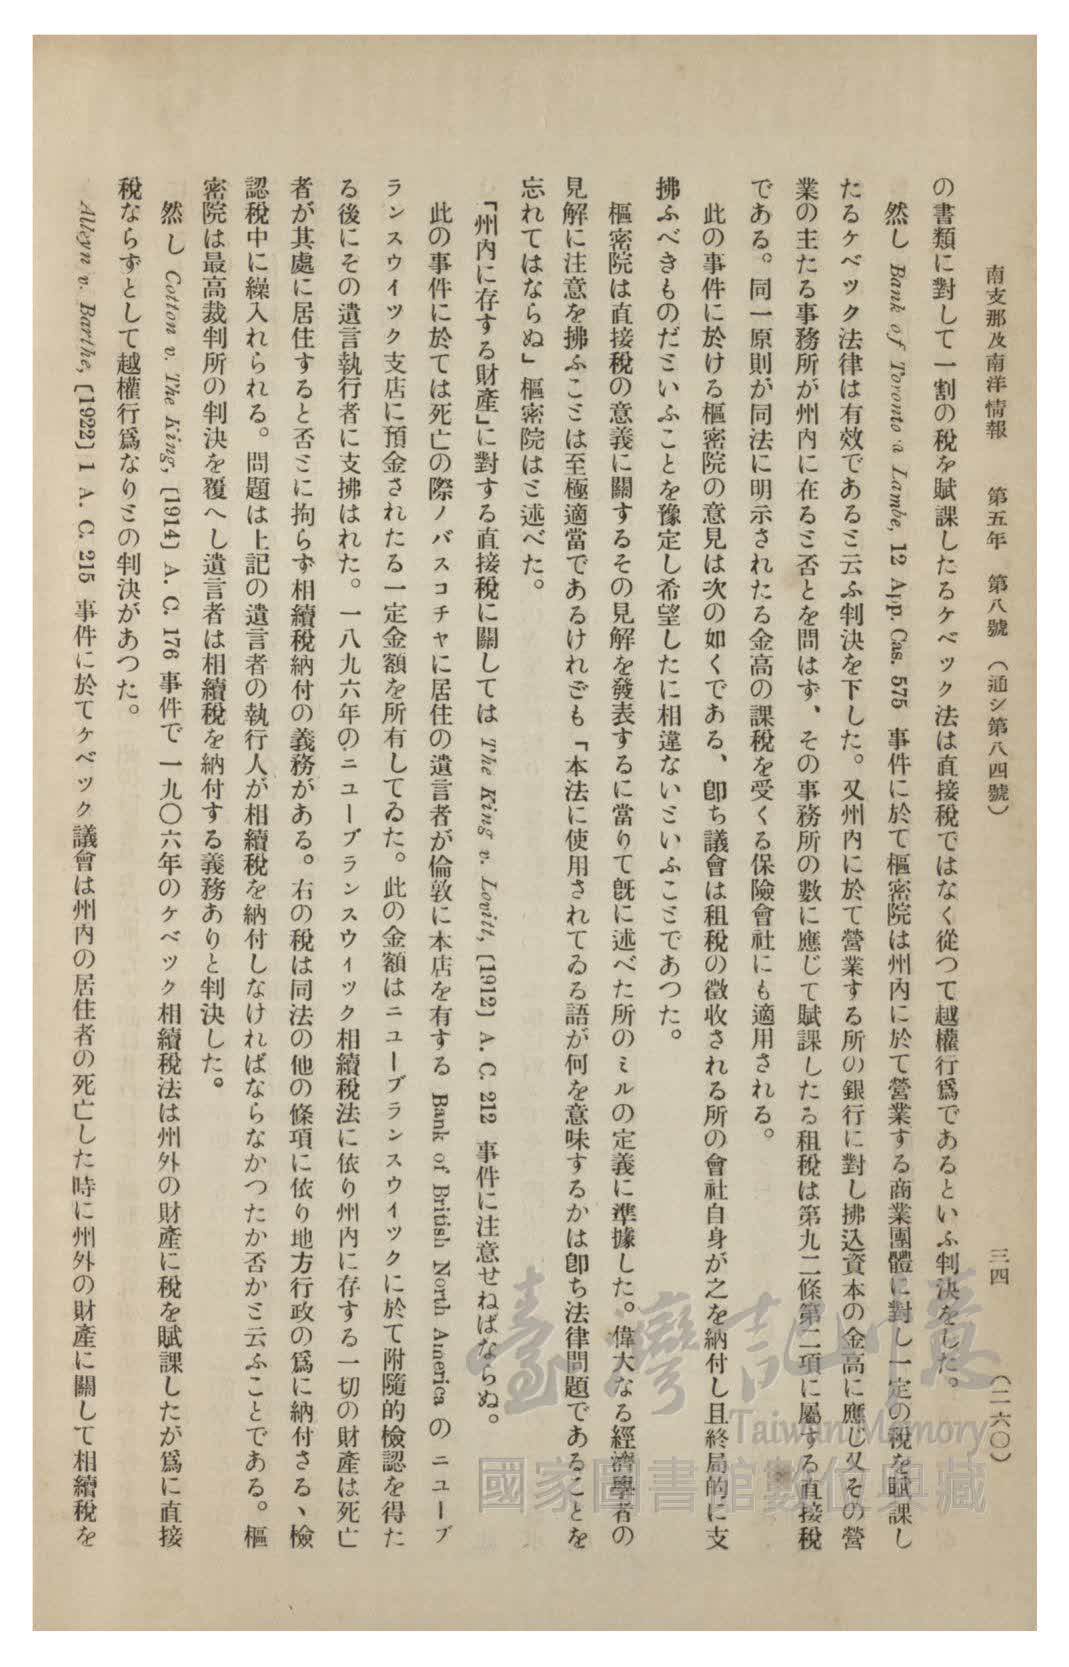 南支那及南洋情報　第五年　第八號　（通シ第八四號）　三四　（二六〇）
の書類に對して一割の稅を賦課したるケベック法は直接稅ではなく從つて越權行爲であるといふ判決をした。
然し Bank of Toronto a Lambe, 12 App. Cas. 575 事件に於て樞密院は州內に於て營業する商業團體に對し一定の稅を賦課し
たるケベック法律は有效であるミ云ふ判決を下した。又州內に於て營業する所の銀行に對し拂込資本の金高に應じ又その營
業の主たる事務所が州內に在るミ否とを問はず、その事務所の數に應じて賦課したる租稅は第九二條第二項に屬する直接稅
である。同一原則が同法に明示されたる金高の課稅を受くる保險會社にも適用される。
此の事件に於ける樞密院の意見は次の如くである、卽ち議會は租稅の徵收される所の會社自身が之を納付し且終局的に支
拂ふべきものだミいふことを豫定し希望したに相違ないミいふこミであつた。
樞密院は直接稅の意義に關するその見解を發表するに當りて旣に述べた所のミルの定義に準據した。偉大なる經濟學者の
見解に注意を拂ふこミは至極適當であるけれども「本法に使用されてゐる語が何を意味するかは卽ち法律問題であることを
忘れてはならぬ」樞密院はミ述べた。
「州內に存する財產」に對する直接稅に關しては The King v. Lovitt, [1912] A. C. 212 事件に注意せねばならぬ。
此の事件に於ては死亡の際ノバスコチャに居住の遺言者が倫敦に本店を有する Bank of British North America のニューブ
ランスウイツク支店に預金されたる一定金額を所有してゐた。此の金額はニューブランスウィツクに於て附隨的檢認を得た
る後にその遺言執行者に支拂はれた。一八九六年のニューブランスウィック相續稅法に依り州內に存する一切の財產は死亡
者が其處に居住すると否ミに拘らず相續稅納付の義務がある。右の稅は同法の他の條項に依り地方行政の爲に納付さる、檢
認稅中に繰入れられる。問題は上記の遺言者の執行人が相續稅を納付しなければならなかつたか否かミ云ふことである。樞
密院は最高裁判所の判決を覆へし遺言者は相續稅を納付する義務ありと判決した。
然し Cotton v. The King, [1914] A. C. 176 事件で一九〇六年のケベック相續稅法は州外の財產に稅を賦課したが爲に直接
稅ならずとして越權行爲なりミの判決があつた。
Alleyn v. Barthe, [1922] 1 A. C. 215 事件に於てケベック議會は州內の居住者の死亡した時に州外の財產に關して相續稅を
臺灣記憶
Taiwan Memory
國家圖書館數位典藏